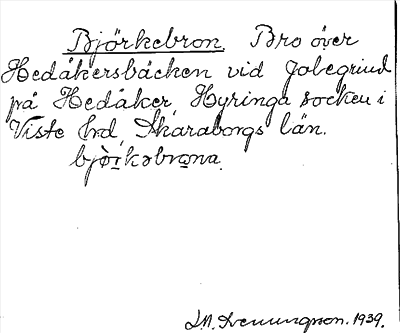 Björkebron. Bro över
Hedåkersbäcken vid Jobegrind
på Hedåker, Hyringa socken i
Viste hrd, Skaraborgs län.
bjò̤rkəbrona.
1939.